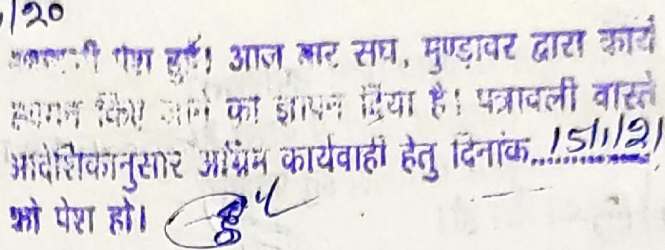 /20
पत्रावली पेश हुई। आज बार संघ, मुण्डावर द्वारा कार्य
स्थगन किए जाने का ज्ञापन दिया है। पत्रावली वास्ते
आदेशिकानुसार अग्रिम कार्यवाही हेतु दिनांक....15/1/21
को पेश हो।